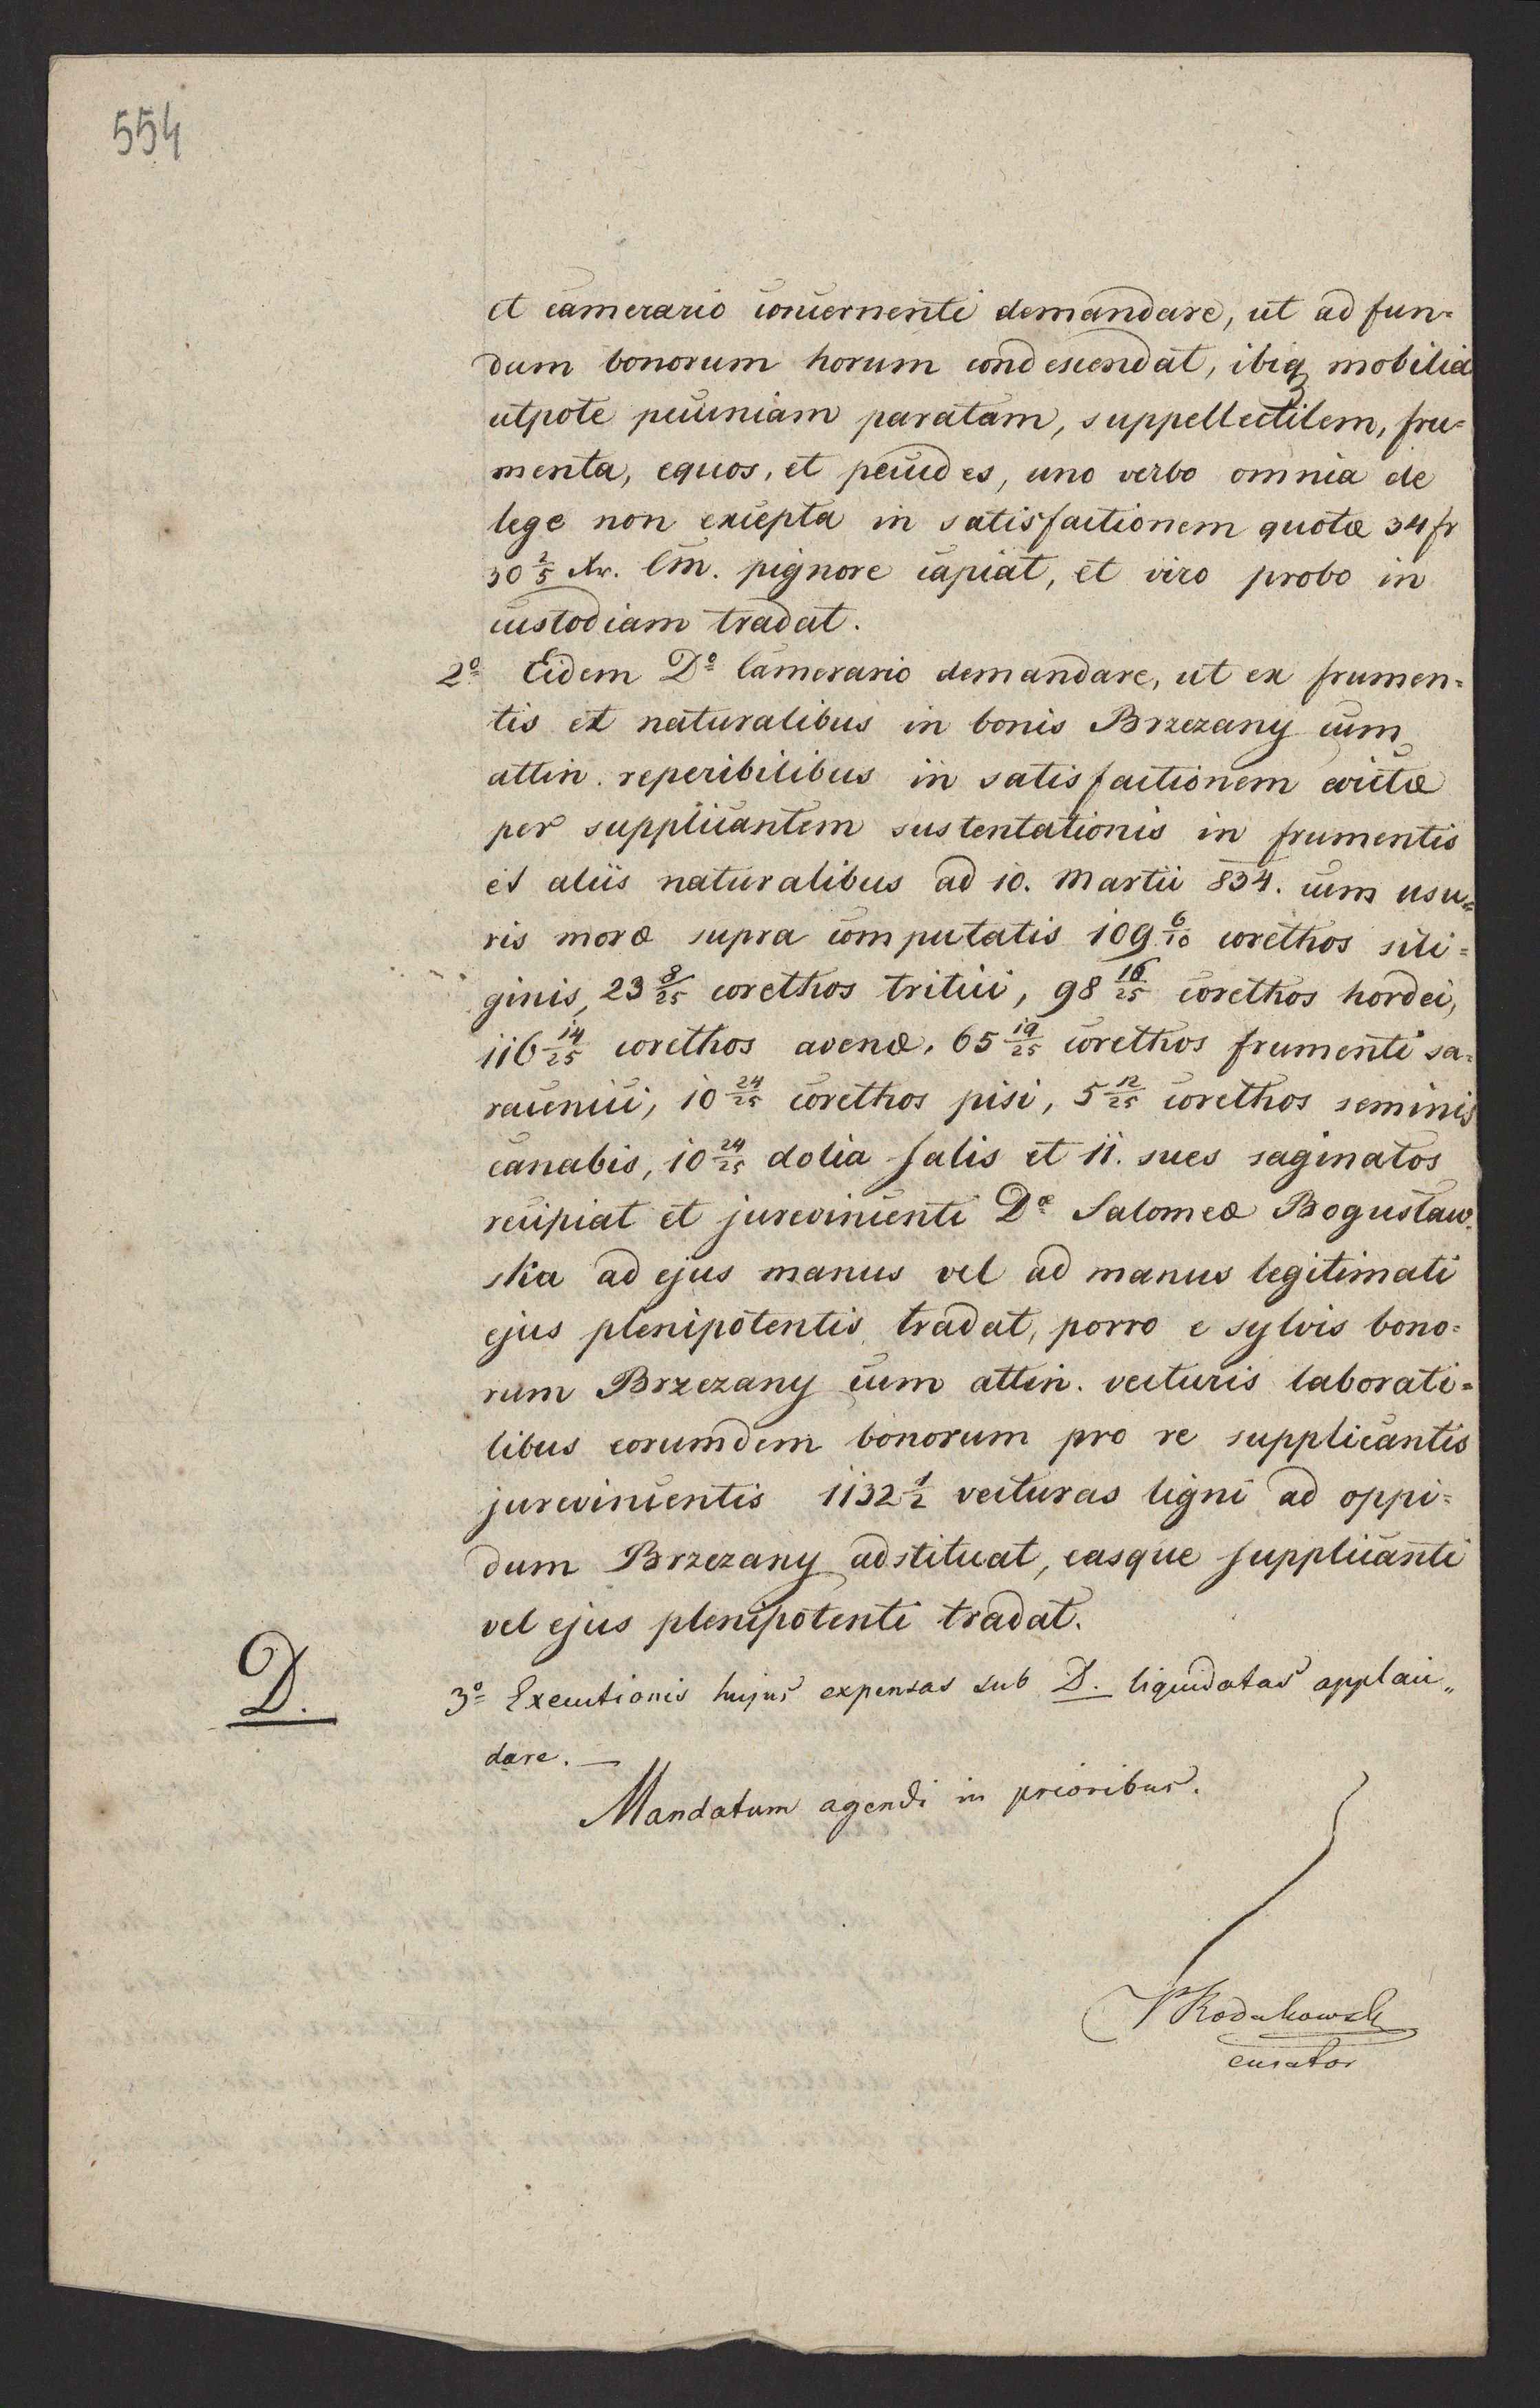 554
et camerario concernenti demandare, ut ad fun=
dum bonorum horum condescendat, ibiq mobilia
utpote pecuniam paratam, suppellectilem, fru=
menta, equos, et pecudes, uno verbo omnia de
lege non excepta in satisfactionem quotæ 34 fr
30 2/5 Xr. Cm. pignore capiat, et viro probo in
custodiam tradat.
2º Eidem Dº Camerario demandare, ut ex frumen=
tis et naturalibus in bonis Brzezany cum
attin. reperibilibus in satisfactionem evictæ
per supplicantem sustentationis in frumentis
et aliis naturalibus ad 10. Martii 834. cum usu=
ris moræ supra computatis 109 6/10 corethos sili=
ginis, 23 8/25 corethos tritici, 98 16/25 corethos hordei,
116 14/25 corethos avenæ, 65 19/25 corethos frumenti sa=
racenici, 10 24/25 corethos pisi, 5 12/25 corethos seminis
canabis, 10 24/25 dolia salis et 11. sues saginatos
recipiat et jurevincenti Dæ Salomeæ Bogusław=
ska ad ejus manus vel ad manus legitimati
ejus plenipotentis tradat, porro e sylvis bono=
rum Brzezany cum attin. vecturis laborati=
libus eorumdem bonorum pro re supplicantis
jurevincentis 1132 1/2 vecturas ligni ad oppi=
dum Brzezany adstituat, easque supplicanti
vel ejus plenipotenti tradat.
D.
3º Executionis hujus expensas sub D. liquidatas applaci„
dare. —
Mandatum agendi in prioribus.
Rodakowski
curator